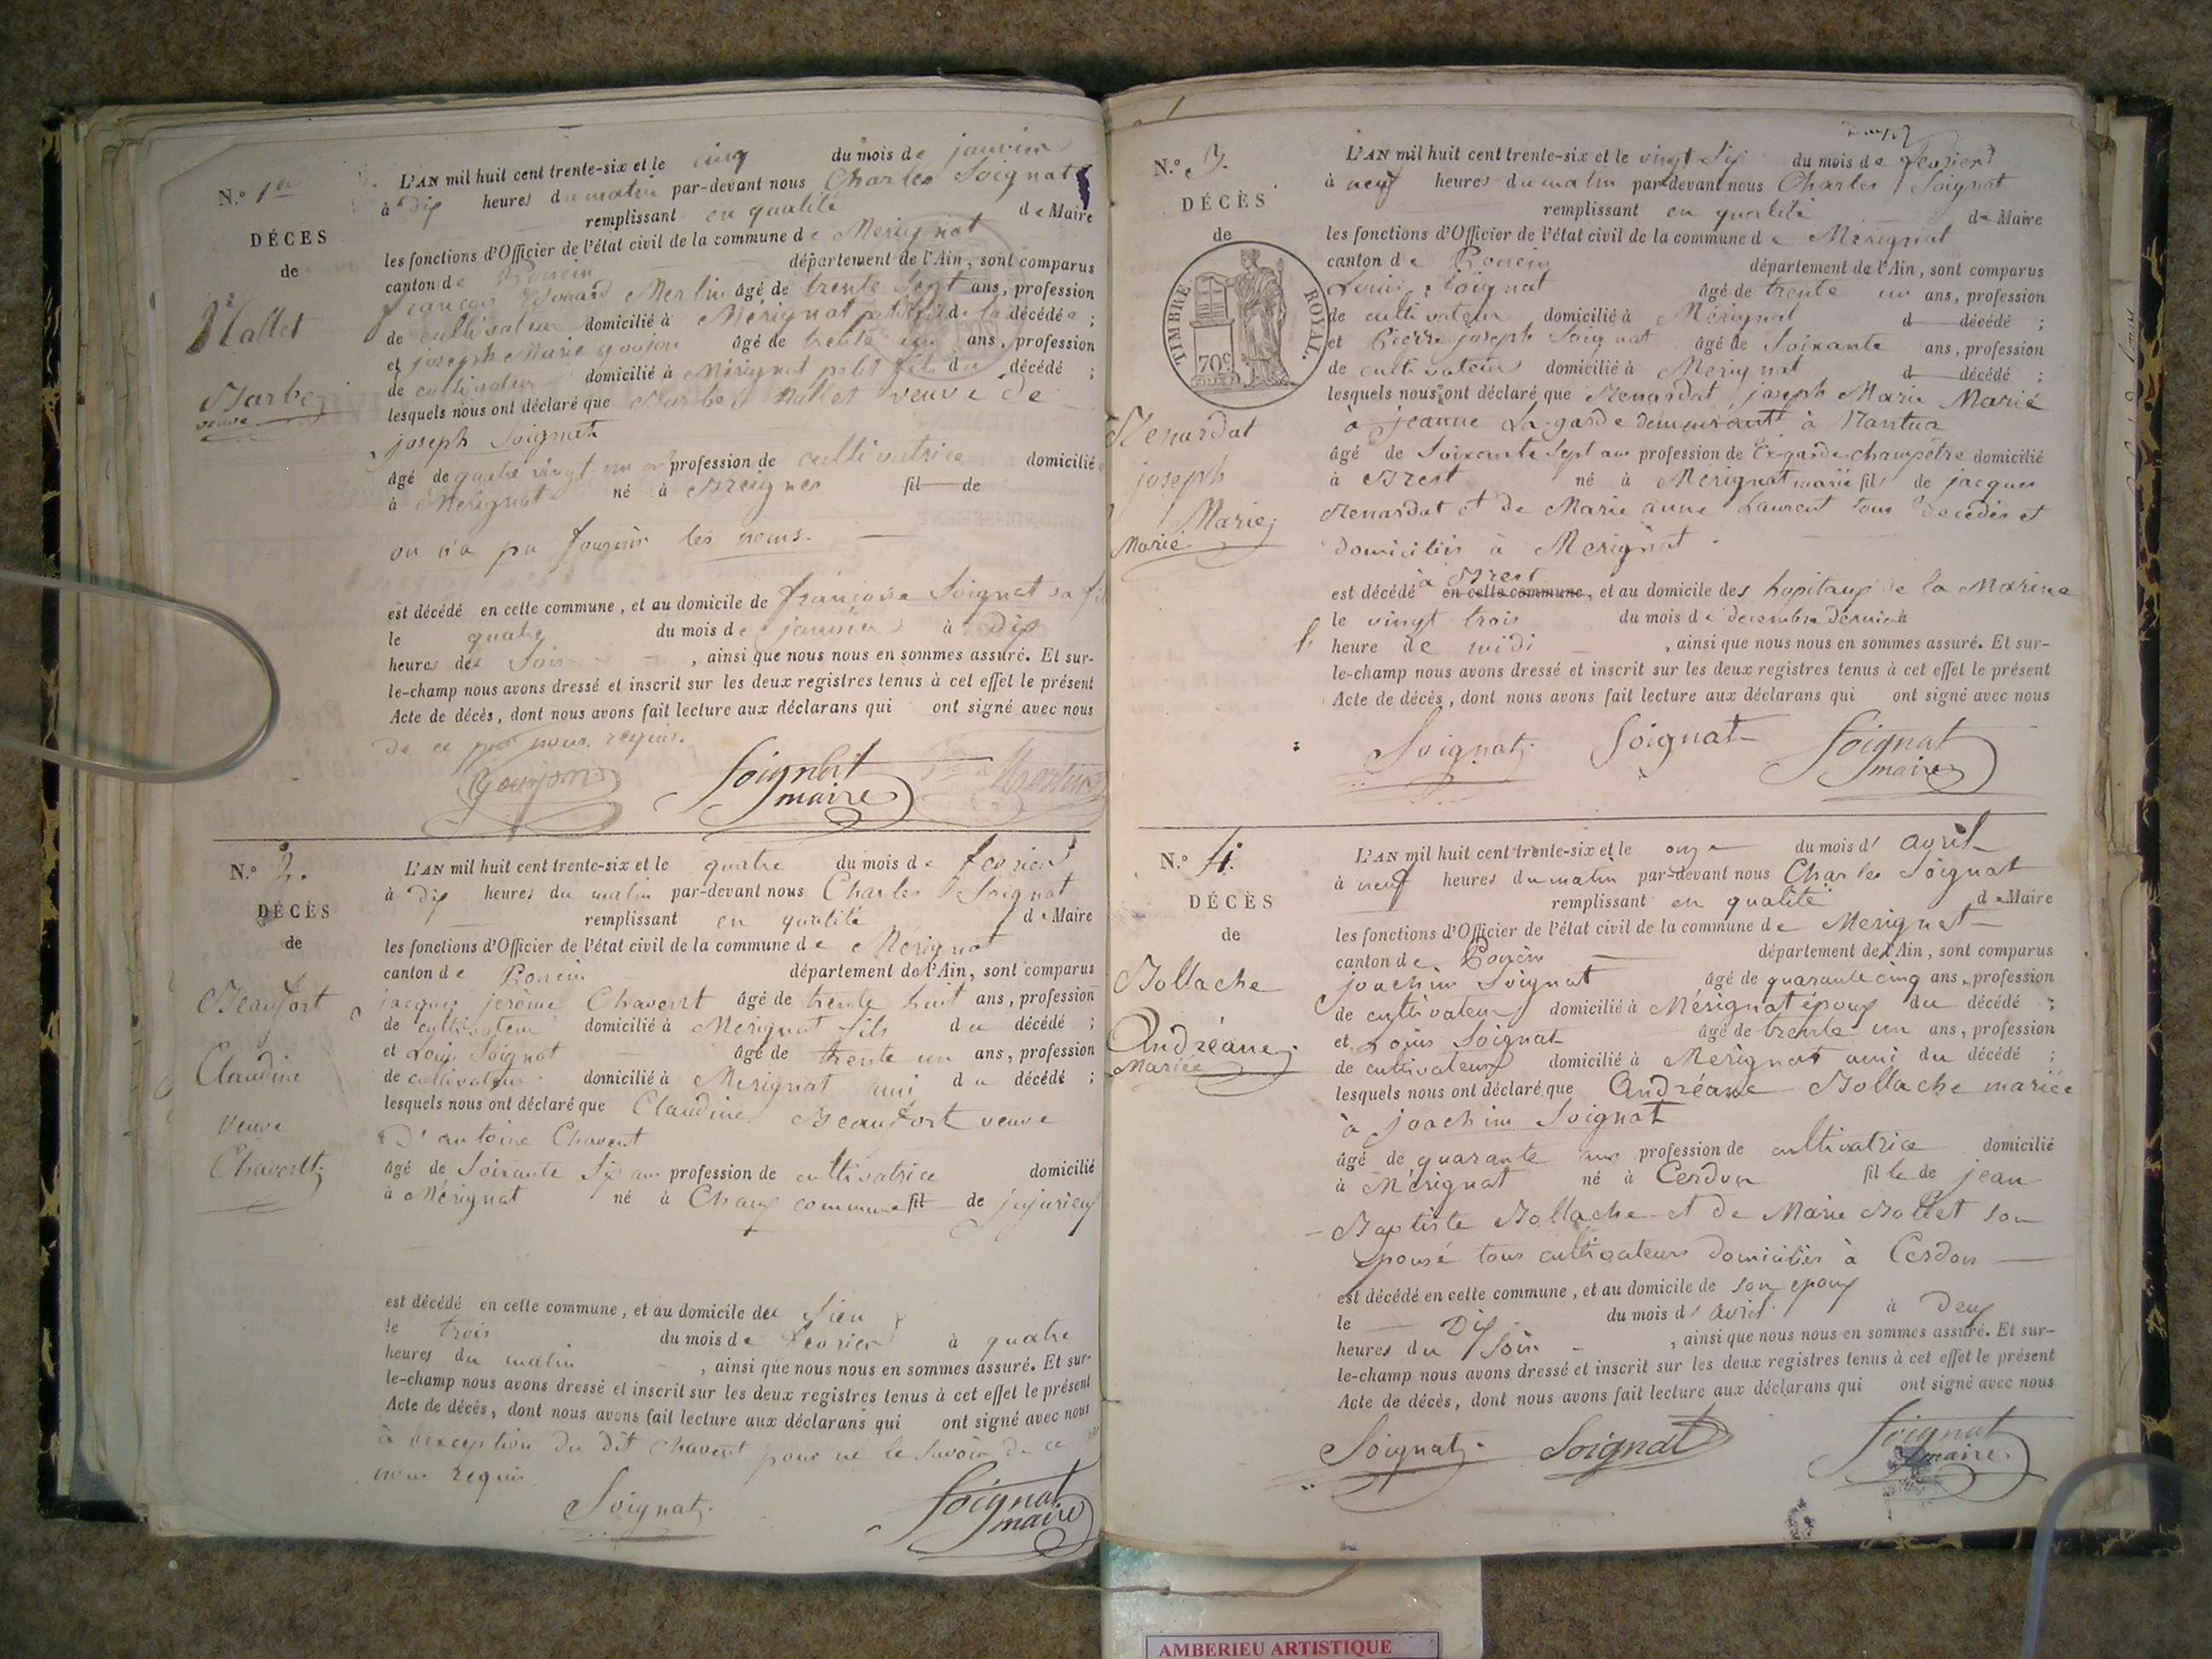 N.º 1er
DÉCES
de
Mallet
Barbe
veuve
L'AN mil huit cent trente-six et le cinq du mois de janvier
à dix heures du matin par-devant nous Charles Soignat
remplissant en qualité de Maire
les fonctions d'Officier de l'état civil de la commune de Mérignat
canton de Poncin département de l'Ain, sont comparus
françois Merlin âgé de trente sept ans, profession
de cultivateur domicilié à Mérignat petit fils de la décédée ;
et joseph Marie goujon âgé de trente un ans, profession
de cultivateur domicilié à Mérignat petit fils du décédé ;
lesquels nous ont déclaré que Barbe Mallet veuve de
joseph Soignat
âgé de quatre vingt un profession de cultivatrice domicilié
à Mérignat né à fil de
on n'a pu fournir les noms.
est décédé en cette commune, et au domicile de françoise Soignat sa
le quatre du mois de janvier à dix
heures de Soir, ainsi que nous nous en sommes assuré. Et sur-
le-champ nous avons dressé et inscrit sur les deux registres tenus à cet effet le présent
Acte de décès, dont nous avons fait lecture aux déclarans qui ont signé avec nous
de ce nous requis.
Goujon Soignat maire Merlin
N.º 2.
DÉCÈS
de
Beaufort
Claudine
veuve
Chavent
L'AN mil huit cent trente-six et le quatre du mois de fevrier
à dix heures du matin par-devant nous Charles Soignat
remplissant en qualité de Maire
les fonctions d'Officier de l'état civil de la commune de Mérignat
canton de Poncin département de l'Ain, sont comparus
jacques jerôme Chavent âgé de trente huit ans, profession
de cultivateur domicilié à Mérignat fils du décédé ;
et Louis Soignat âgé de trente un ans, profession
de cultivateur domicilié à Mérignat ami du décédé ;
lesquels nous ont déclaré que Claudine Beaufort veuve
D'antoine Chavent
âgé de Soixante Six ans profession de cultivatrice domicilié
à Mérignat né à Chaux commune fil de jujurieux
est décédé en cette commune, et au domicile de Sien
le trois du mois de fevrier à quatre
heures du matin, ainsi que nous nous en sommes assuré. Et sur-
le-champ nous avons dressé et inscrit sur les deux registres tenus à cet effet le présent
Acte de décès, dont nous avons fait lecture aux déclarans qui ont signé avec nous
à l'exception du dit Chavent pour ne le Savoir de ce
nous requis
Soignat Soignat maire
N.º 3.
DÉCÈS
de
TIMBRE ROYAL.
70c
Renardat
joseph
Marie
Marié
L'AN mil huit cent trente-six et le vingt Six du mois de fevrier
à neuf heures du matin par-devant nous Charles Soignat
remplissant en qualité de Maire
les fonctions d'Officier de l'état civil de la commune de Mérignat
canton de Poncin département de l'Ain, sont comparus
Louis Soignat âgé de trente un ans, profession
de cultivateur domicilié à Mérignat d décédé ;
et Pierre joseph Soignat âgé de Soixante ans, profession
de cultivateur domicilié à Mérignat d décédé ;
lesquels nous ont déclaré que Renardat joseph Marie Marié
à jeanne Lagarde demeurant à Nantua
âgé de Soixante Sept ans profession de Ex-garde-champêtre domicilié
à Brest né à Mérignat marié fils de jacques
Renardat et de Marie anne Laurent tous décédés et
domiciliés à Mérignat.
à Brest
est décédé en cette commune, et au domicile des hopitaux de la Marine
le vingt trois du mois de decembre dernier à
heure de midi, ainsi que nous nous en sommes assuré. Et sur-
le-champ nous avons dressé et inscrit sur les deux registres tenus à cet effet le présent
Acte de décès, dont nous avons fait lecture aux déclarans qui ont signé avec nous
Soignat Soignat Soignat maire
N.º 4.
DÉCÈS
de
Bollache
Andréane
Mariée
L'AN mil huit cent trente-six et le onze du mois d'avril
à neuf heures du matin par-devant nous Charles Soignat
remplissant en qualité de Maire
les fonctions d'Officier de l'état civil de la commune de Mérignat
canton de Poncin département de l'Ain, sont comparus
joachim Soignat âgé de quarante cinq ans, profession
de cultivateur domicilié à Mérignat époux du décédé ;
et Louis Soignat âgé de trente un ans, profession
de cultivateur domicilié à Mérignat ami du décédé ;
lesquels nous ont déclaré que Andréane Bollache mariée
à joachim Soignat
âgé de quarante ans profession de cultivatrice domicilié
à Mérignat né à Cerdon fille de jean
Baptiste Bollache et de Marie Bollet son
epouse tous cultivateurs domiciliés à Cerdon
est décédé en cette commune, et au domicile de son epoux
le Dix du mois d'avril à deux
heures du Soir, ainsi que nous nous en sommes assuré. Et sur-
le-champ nous avons dressé et inscrit sur les deux registres tenus à cet effet le présent
Acte de décès, dont nous avons fait lecture aux déclarans qui ont signé avec nous
Soignat Soignat Soignat maire
AMBERIEU ARTISTIQUE